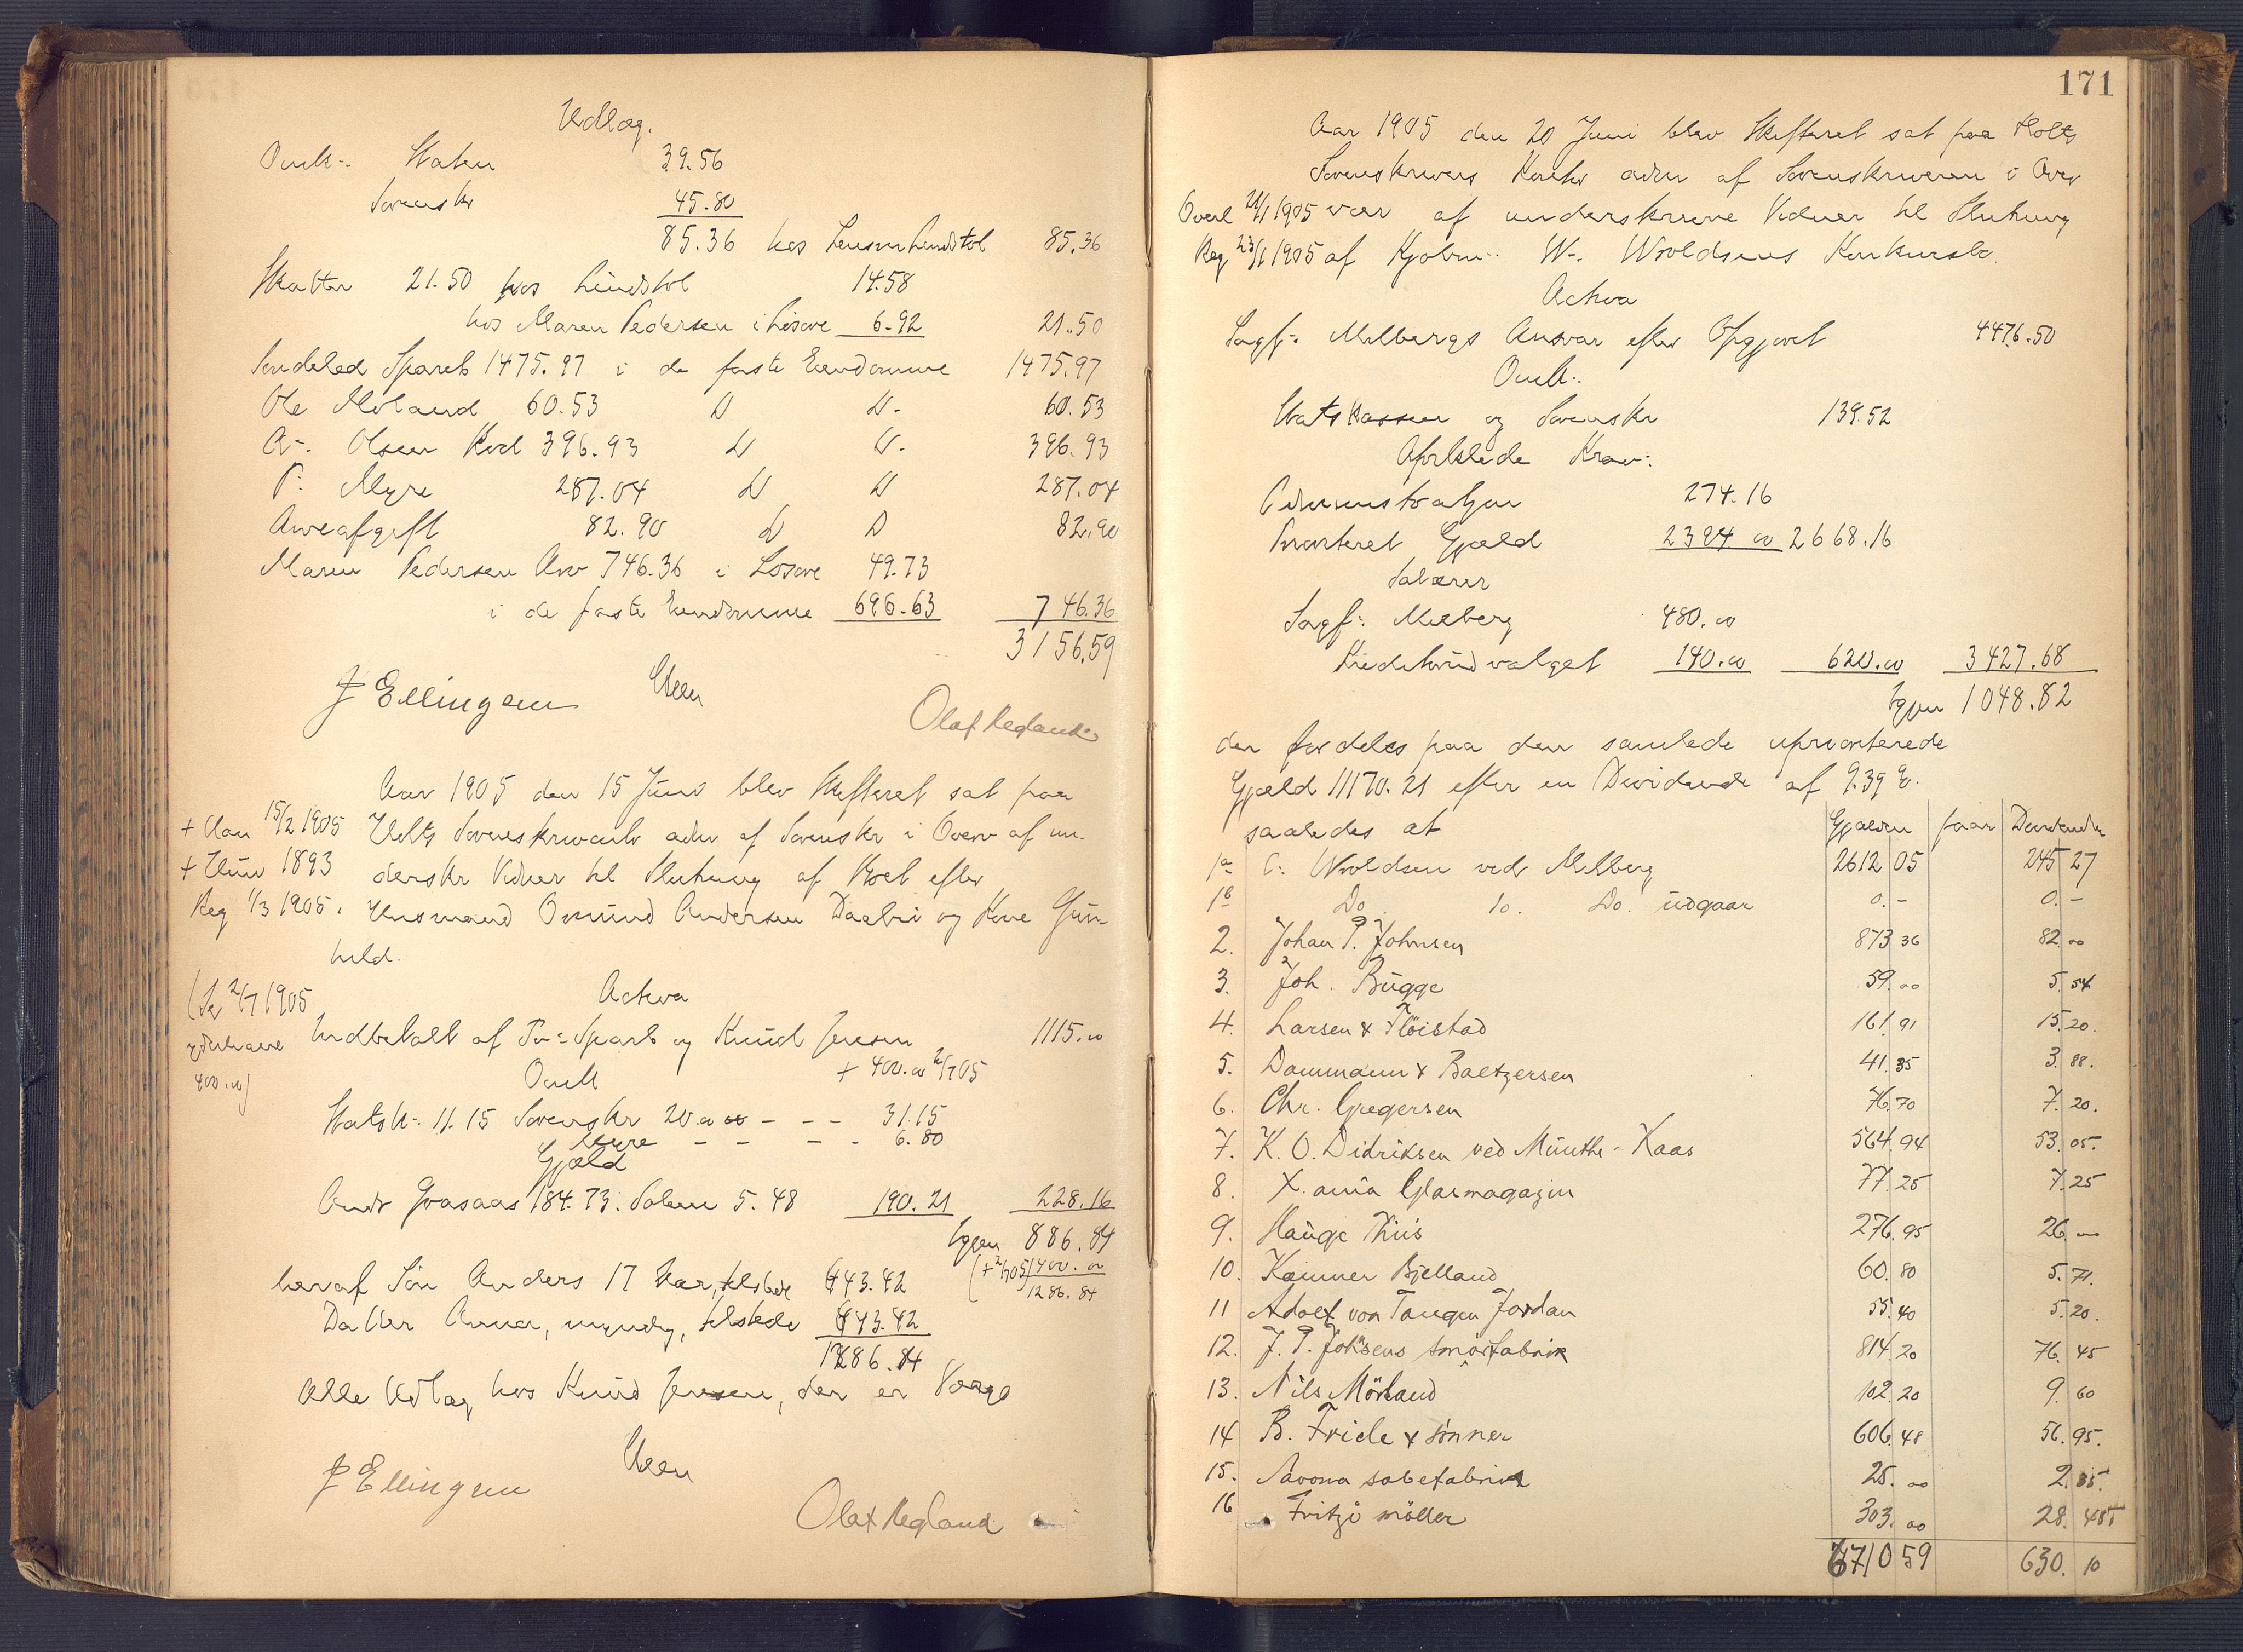 Udlæg.
Omk. Staten 39.56
Sorenskr 45.80
85.36 hos Lensm Lindstøl 85.36
Skatter 21.50 hos Lindstøl 14.58
hos Maren Pedersen i Løsøre 6.92 21.50
Søndeled Spareb 1475.97 i de faste Eiendomme 1475.97
Ole Moland 60.53 D D. 60.53
A. Olsen 396.93 D D. 396.93
P. Myre 287.04 D D 287.04
Arveafgift 82.90 D D 82.90
Maren Pedersen Arv 746.36 i Løsøre 49.73
i de faste Eiendomme 696.63 746.36
3156.59
J Ellingsen Steen
Olaf Regland
Aar 1905 den 15 Juni blev Skifteret sat paa
+ Man 15/2 1905 Holts Sorenskrivcontr adm af Sorenskr i Overv af un-
+ Hun 1893 derskr Vidner til Slutning af Boet efter
Reg 1/3 1905. Husmand Osmund Andersen Dalbu og Kone Gun-
hild.
(Se 2/7 1905 Activa
yderligere Indbetalt af Tv. Spareb og Knud Jensen 1115.00
400.00) Omk + 400.00 2/7 05
Statsk. 11.15 Sorenskr 20.00 - - - 31.15
Myre - - - - 6.80
Gjæld
Andr Graasaas 184.73. Salær 5.48 190.21 228.16
Igjen 886.84
heraf Søn Anders 17 Aar, tilstede 643.42 (+ 2/7 05) 400.00
1286.84
Datter Anna, myndig, tilstede 643.42
1286.84
Alle Udlæg hos Knud Jensen, der er Værge
Steen
J Ellingsen
Olaf Regland
171
Aar 1905 den 20 Juni blev Skifteret sat paa Holts
Sorenskrivers Kontor adm af Sorenskriveren i Over
Overl 21/1 1905 vær af underskrevne Vidner til Slutning
Reg 23/1 1905 af Kjøbm. W. Wroldsens Konkursbo.
Activa
Sagf. Melbergs Ansvar efter Opgjøret 4476.50
Omk.
Statskassen og Sorenskr 139.52
Aprilslede Krav:
Administration 274.16
Prioriteret Gjæld 2394 00 2668.16
Salærer
Sagf. Melberg 480.00
Kreditorudvalget 140.00 620.00 3427.68
Igjen 1048.82
der fordeles paa den samlede uprioriterede
Gjæld 11170.21 efter en Dividende af 9.39 %.
saaledes at Gjælden faar Dividenden
1a C. Wroldsen ved Melberg 2612 05 245 27
1b Do Do. Do. udgaar 0. - 0. -
2. Johan P. Johnsen 873 36 82 00
3. Joh. Bugge 59.00 5.54
4. Larsen & Fløistad 161.91 15.20.
5. Dammann & Baetzersen 41.35 3.88.
6. Chr. Gregersen 76.70 7.20.
7. K. O. Didriksen ved Munthe-Kaas 564.94 53.05.
8. X.ania Glasmagazin 77.25 7.25
9. Hauge Thiis 276.95 26.00
10. Kammer Bjelland 60.80 5.71.
11 Adolf von Tangen Jordan 55.40 5.20.
12. J. P. Johnsens smørfabrik 814.20 76.45
13. Nils Mörland 102.20 9.60
14 B. Friele & Sønner 606.48 56.95.
15. Savona sæbefabrik 25.00 2.35.
16 Fritzö möller 303.00 28.45
6710 59 630.10